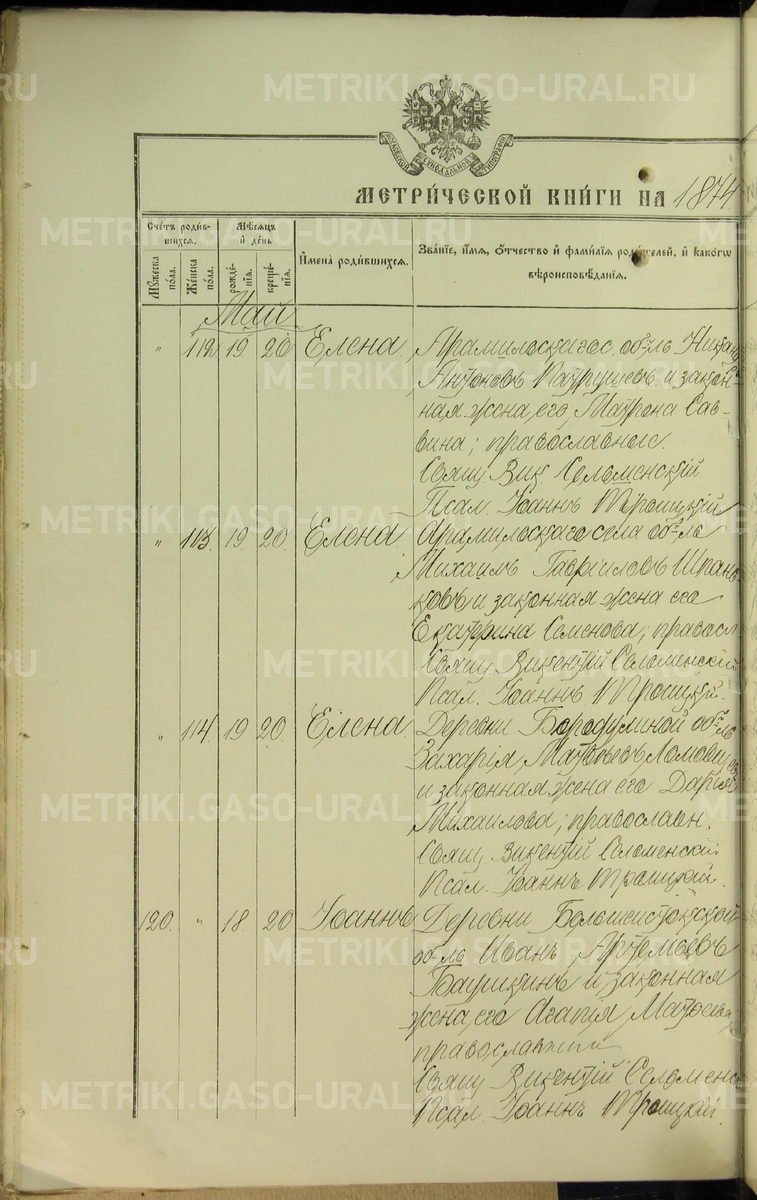 METRIKI.GASO-URAL.RU
МЕТРИ́ЧЕСКОЙ КНИ́ГИ НА 1874
Сче́тъ роди́в-
шихся.
Мѣ́сяцъ
и҆ де́нь
И҆мена̀ роди́вшихся.
Зва́нїе, и҆́мя, ѻ҆́тчество и҆ фами́лїя роди́телей, и҆ како́гѡ
вѣроисповѣ́данїя.
Мꙋ́жеска
по́ла.
Же́нска
по́ла.
рожде́-
нїя.
креще́-
нїя.
Май
" 112 19 20 Елена. Арамильскаго с. об-ль
Антоновъ Патрушевъ и закон-
ная жена его, Матрона Сав-
вина; православные.
Свящ. Вик. Селеменскій
Псал. Іоаннъ Троицкій
" 113. 19. 20. Елена Арамильскаго села об-ль
Михаилъ Гавріиловъ
ковъ и законная жена его
Екатерина Семенова; правосл.
Свящ. Викентій Селеменскій
Псал. Іоаннъ Троицкій.
" 114. 19 20 Елена. Деревни Бородулиной об-ль
Захарія Матвѣевъ
и законная жена его Дарія
Михаилова; православн.
Свящ. Викентій Селеменскій
Псал. Іоаннъ Троицкій.
120. " 18. 20 Іоаннъ Деревни Большеистокской
об-ль Иванъ Артемьевъ
и законная
жена его Агапія Матѳеева
православные
Свящ. Викентій Селеменск
Псал. Іоаннъ Троицкій.